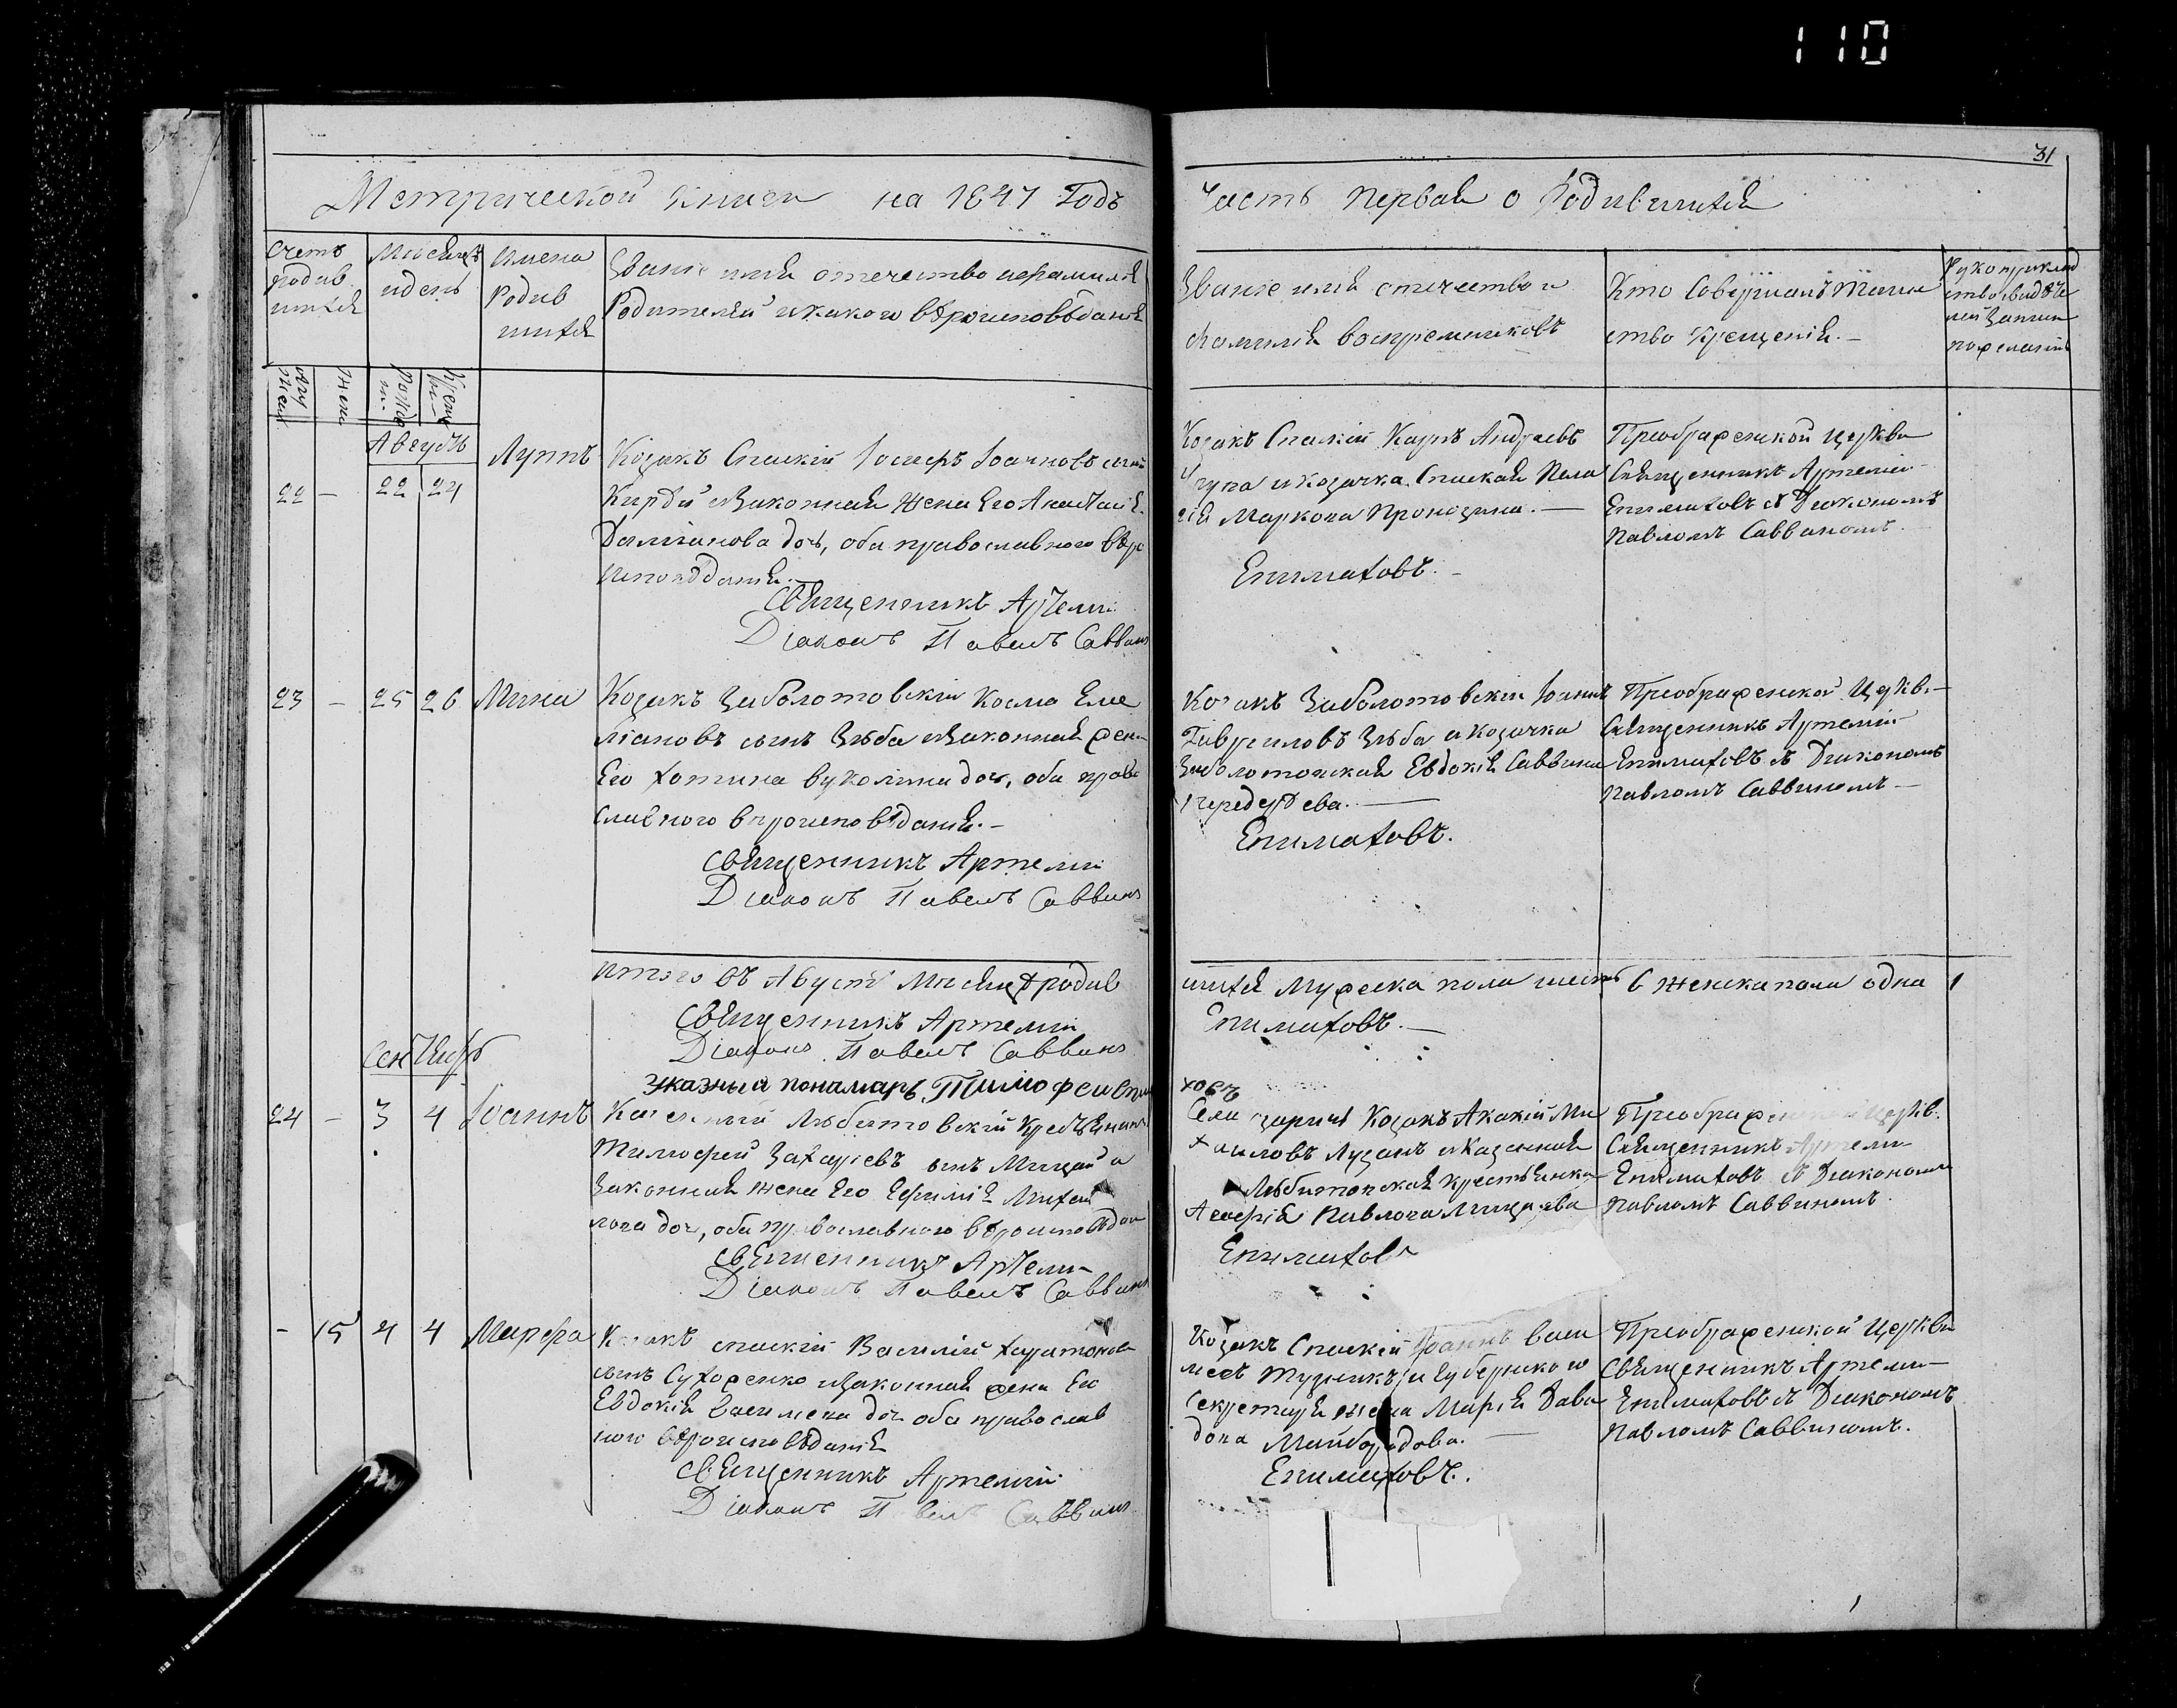 110
31
Метрической книги на 1847 Годъ
Часть первая о Родившихся
Счетъ родив шихся
Мѣсяцъ и день
Имена Родив шихся
Званіе имя отечество и фамилія
Родителей и какого вѣроисповѣданія
Званіе имя отечество и
фамилія воспреемниковъ
Кто Совершалъ Таин
ство Крещенія.-
Рукоприклад
ство свидѣте
лей записи
по желанію
Муж
Жен
Рожде
Крещ
Августъ
22 - 22 24 Луппъ
Козакъ Спаскій Іосифъ Іоанновъ сынъ
законная жена Его Анастасія
Даміанова доч, оба православного вѣро
исповѣданія.
Священникъ Артемій
Діаконъ Павелъ Саввинъ
Козакъ Спаскій Карпъ Андреевъ
и козачка Спаская Пела
гія Маркова
Епиматовъ.-
Преображенской Церкви
Священникъ Артемій
Епиматовъ съ Діакономъ
Павломъ Саввиномъ
23 - 25 26 Мина
Козакъ Заболотовскій Косма Еме
ліановъ сынъ Зѣба и законная жена
Его Хотина Вуколина доч, оба право
славного вѣроисповѣданія.-
Священникъ Артемій
Діаконъ Павелъ Саввинъ
Козакъ Заболотовскій Іоаннъ
Гавриловъ Зѣба и козачка
Заболотовская Евдокія Саввина
Епиматовъ.
Преображенской Церкв.-
Священникъ Артемій
Епиматовъ съ Діакономъ
Павломъ Саввиномъ-
Итого въ Августѣ Мѣсяцѣ родив
шихся Мужеска пола шесть 6 женска пола одна 1
Священникъ Артемій
Діаконъ Павелъ Саввинъ
Епиматовъ.-
указный понамарь Тимофей
ховъ
Сентябрь
24 - 3 4 Іоаннъ
Казенный Любитовскій Крестьянинъ
Тимофей Захаріевъ сынъ Мицай и
законная жена Его Ефимія Михаи
лова доч, оба православного вѣроисповѣдан
Священникъ Артемій
Діаконъ Павелъ Саввинъ
Козакъ Акакій Ми
хаиловъ Лузанъ и Казенная
Любитовская крестьянка
Агафія Павлова
Епиматовъ
Преображенской Церкв.
Священникъ Артемій
Епиматовъ съ Діакономъ
Павломъ Саввиномъ
- 15 4 4 Марфа
Козакъ спаскій Василій Харитоновъ
сынъ Сухоренко и законная жена Его
Евдокія Васильева доч оба православ
ного вѣроисповѣданія
Священникъ Артемій
Діаконъ Павелъ Саввинъ
Козакъ Спаскій Іоаннъ Васи
ліевъ и губернского
Секретаря жена Марія Дави
дова Майбородова.
Епиматовъ.
Преображенской Церкви
Священникъ Артемій
Епиматовъ съ Діакономъ
Павломъ Саввиномъ.